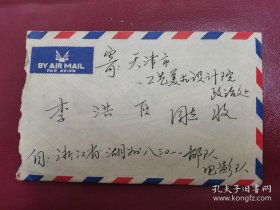 BY AIR MAIL
PAR AVION
寄: 天津市
工艺美术设计院
政治处
李洪 同志 收
自: 浙江省湖州八三〇一部队
电影队
孔夫子旧书网